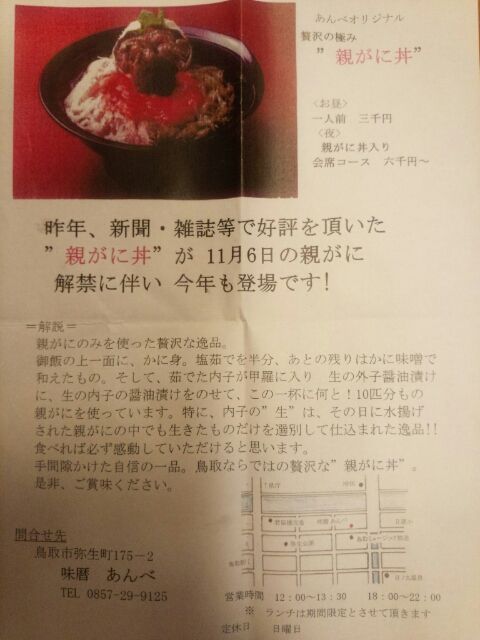 あんべオリジナル
贅沢の極み
”親がに丼”
〈お昼〉
一人前 三千円
〈夜〉
親がに丼入り
会席コース 六千円～
昨年、新聞・雑誌等で好評を頂いた
”親がに丼”が 11月6日の親がに
解禁に伴い 今年も登場です!
＝解説＝
親がにのみを使った贅沢な逸品。
御飯の上一面に、かに身。塩茹でを半分、あとの残りはかに味噌で
和えたもの。そして、茹でた内子が甲羅に入り 生の外子醤油漬け
に、生の内子の醤油漬けをのせて、この一杯に何と！10匹分もの
親がにを使っています。特に、内子の”生”は、その日に水揚げ
された親がにの中でも生きたものだけを選別して仕込まれた逸品!!
食べれば必ず感動していただけると思います。
手間隙かけた自信の一品。鳥取ならではの贅沢な”親がに丼”。
是非、ご賞味ください。
問合せ先
鳥取市弥生町175－2
味暦 あんべ
TEL 0857-29-9125
県庁
味暦 あんべ
弥生公園
営業時間 12：00～13：30 18：00～22：00
※ ランチは期間限定とさせて頂きます
定休日 日曜日